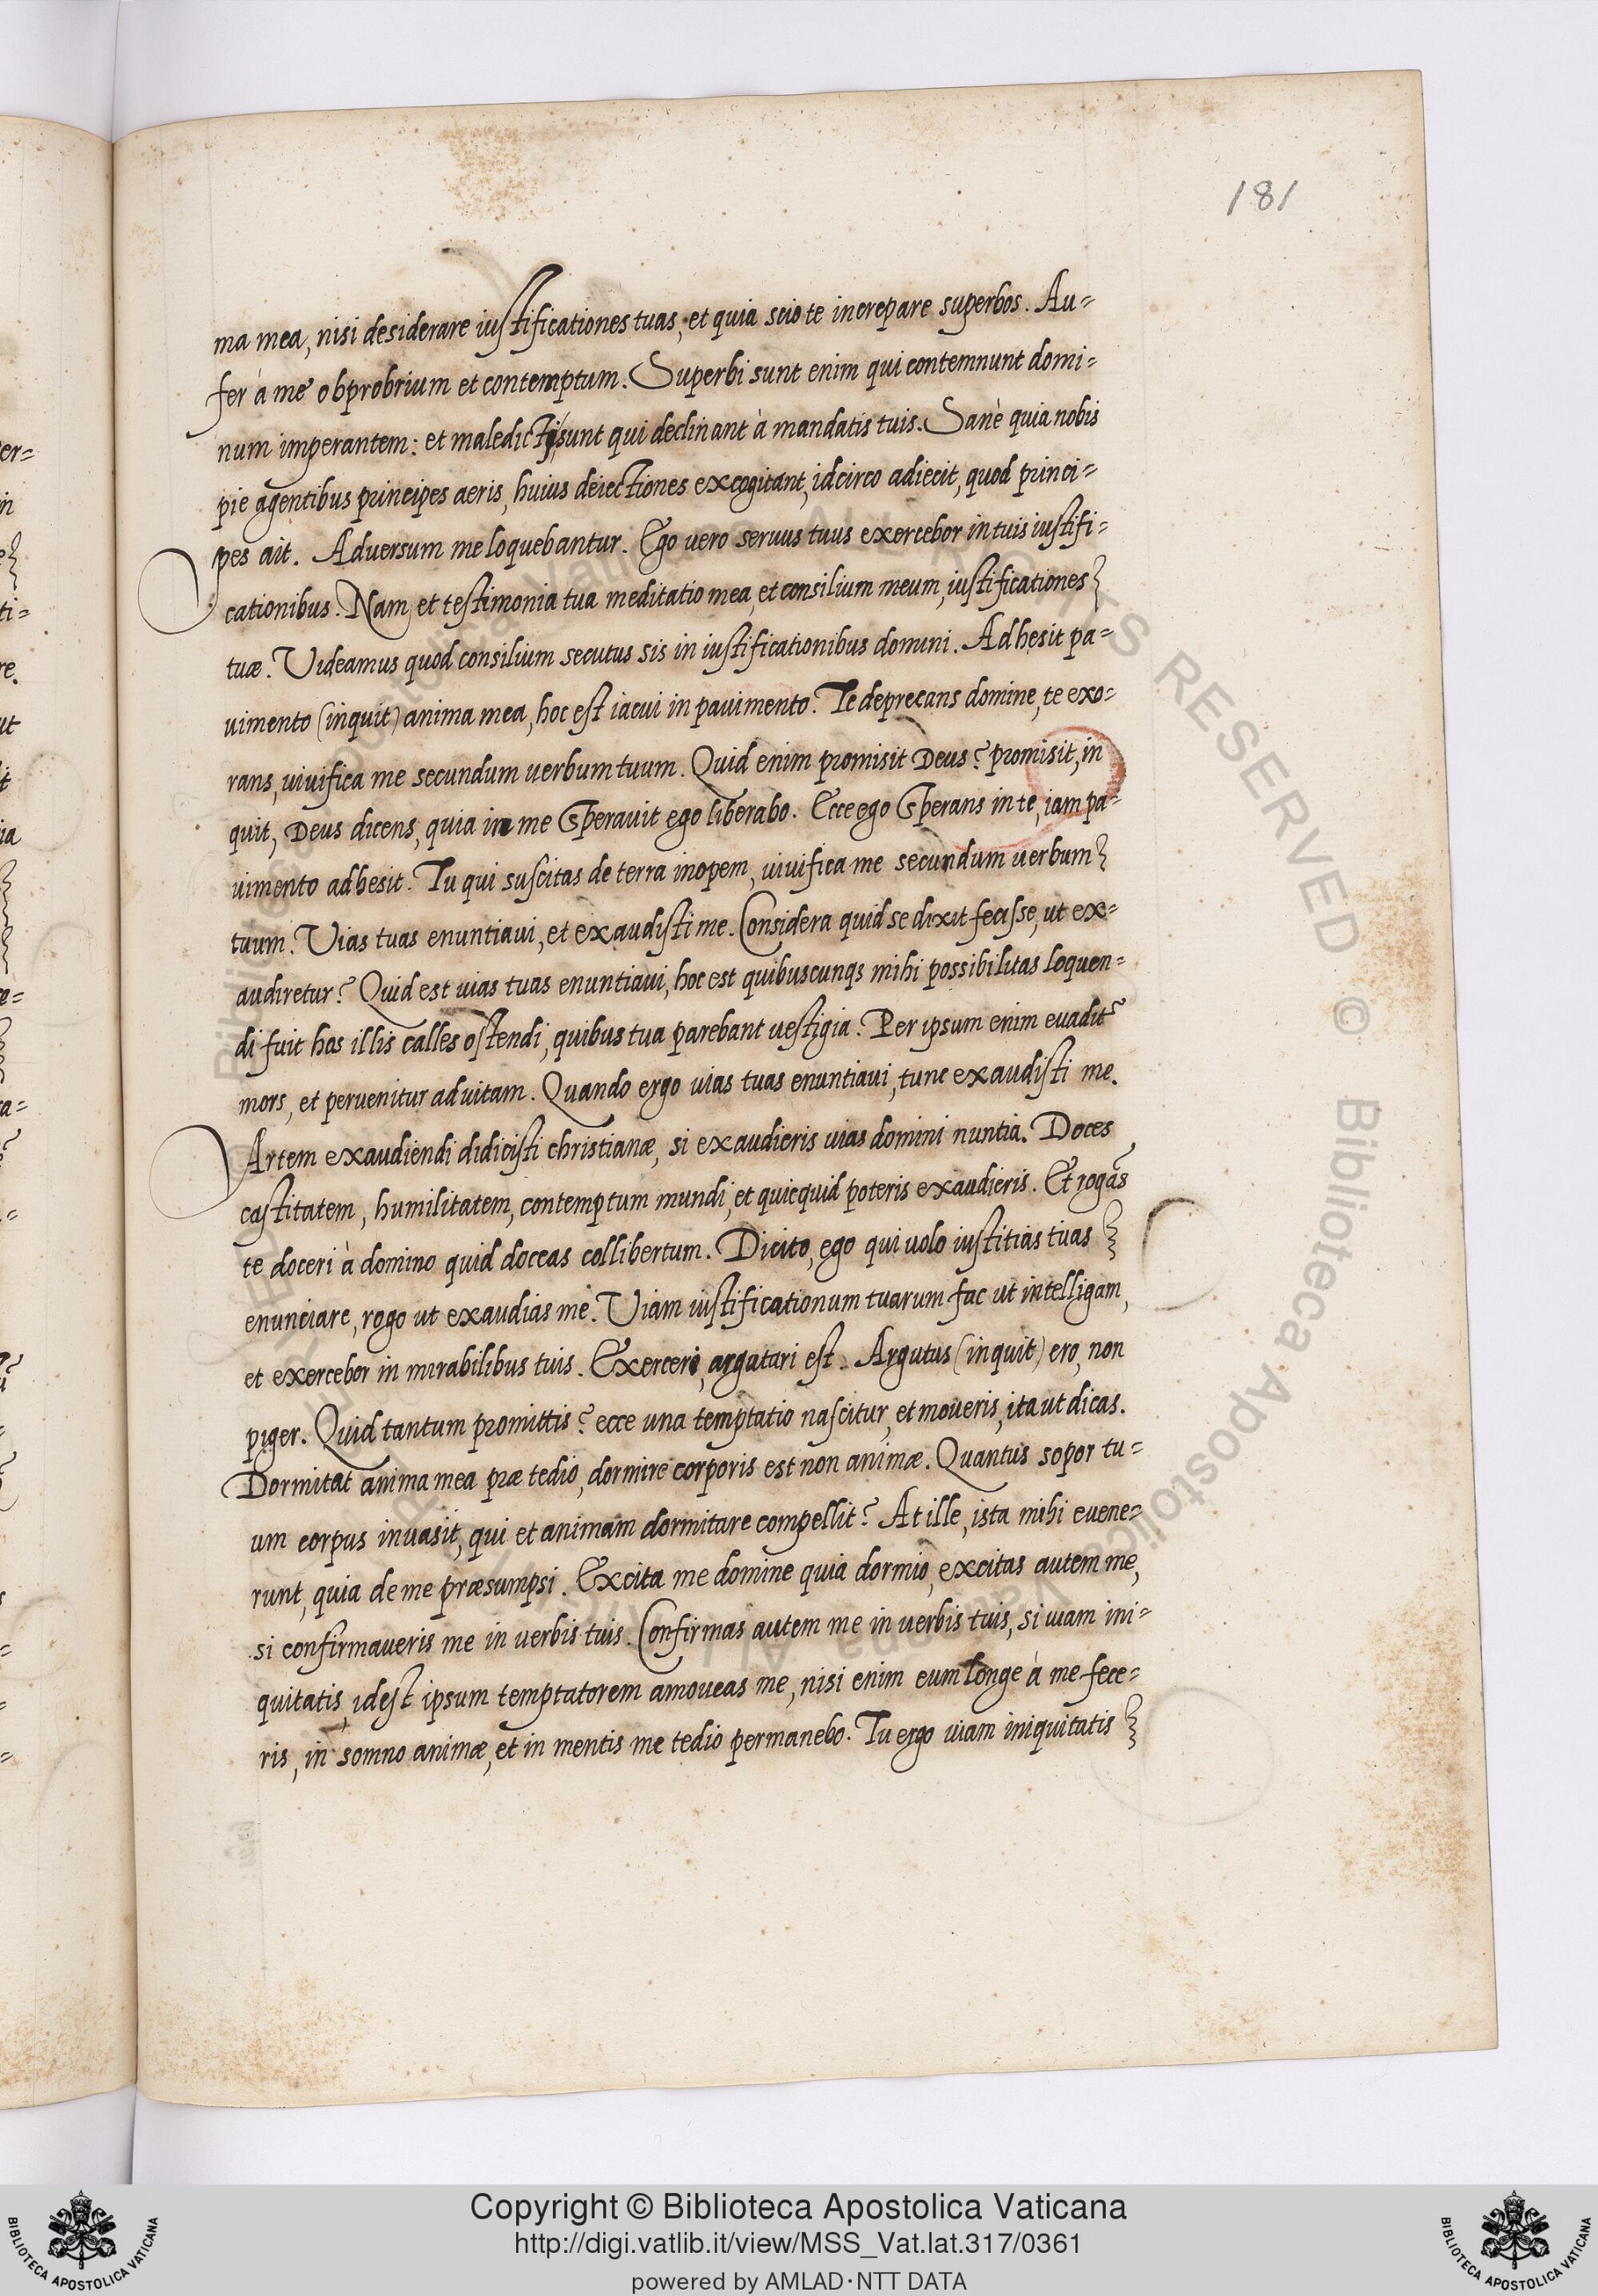 181
ma mea, nisi desiderare iustificationes tuas, et quia scio te increpare superbos. Au=
fer à me obprobrium et contemptum. Superbi sunt enim qui contemnunt domi=
num imperantem: et maledicti sunt qui declinant à mandatis tuis. Sanè quia nobis
pie agentibus principes aeris, huius deiectiones excogitant, idcirco adiecit, quod princi=
pes ait. Aduersum me loquebantur. Ego uero seruus tuus exercebor in tuis iustifi=
cationibus. Nam et testimonia tua meditatio mea, et consilium meum, iustificationes
tuæ. Uideamus quod consilium secutus sis in iustificationibus domini. Adhęsit pa=
uimento (inquit) anima mea, hoc est iacui in pauimento. Te deprecans domine, te exo=
rans, uiuifica me secundum uerbum tuum. Quid enim promisit Deus? promisit, in
quit, Deus dicens, quia in me sperauit ego liberabo. Ecce ego sperans in te, iam pa=
uimento adhesit. Tu qui suscitas de terra inopem, uiuifica me secundum uerbum
tuum. Uias tuas enuntiaui, et exaudisti me. Considera quid se dixit fecisse, ut ex=
audiretur? Quid est uias tuas enuntiaui, hoc est quibuscunqs mihi possibilitas loquen=
di fuit has illis calles ostendi, quibus tua parebant uestigia. Per ipsum enim euadit
mors, et peruenitur ad uitam. Quando ergo uias tuas enuntiaui, tunc exaudisti me.
Artem exaudiendi didicisti christianæ, si exaudieris uias domini nuntia. Doces
castitatem, humilitatem, contemptum mundi, et quicquid poteris exaudieris. Et rogas
te doceri à domino quid doceas collibertum. Dicito, ego qui uolo iustitias tuas
enunciare, rogo ut exaudias me. Uiam iustificationum tuarum fac ut intelligam,
et exercebor in mirabilibus tuis. Exerceri, argutari est. Argutus (inquit) ero, non
piger. Quid tantum promittis? ecce una temptatio nascitur, et moueris, ita ut dicas.
Dormitat anima mea præ tedio, dormire corporis est non animæ. Quantus sopor tu=
um corpus inuasit, qui et animam dormitare compellit? At ille, ista mihi euene=
runt, quia de me præsumpsi. Excita me domine quia dormio, excitas autem me,
si confirmaueris me in uerbis tuis. Confirmas autem me in uerbis tuis, si uiam ini=
quitatis, idest ipsum temptatorem amoueas me, nisi enim eum longe à me fece=
ris, in somno animæ, et in mentis me tedio permanebo. Tu ergo uiam iniquitatis
Copyright © Biblioteca Apostolica Vaticana
http://digi.vatlib.it/view/MSS_Vat.lat.317/0361
powered by AMLAD·NTT DATA
BIBLIOTECA APOSTOLICA VATICANA
BIBLIOTECA APOSTOLICA VATICANA